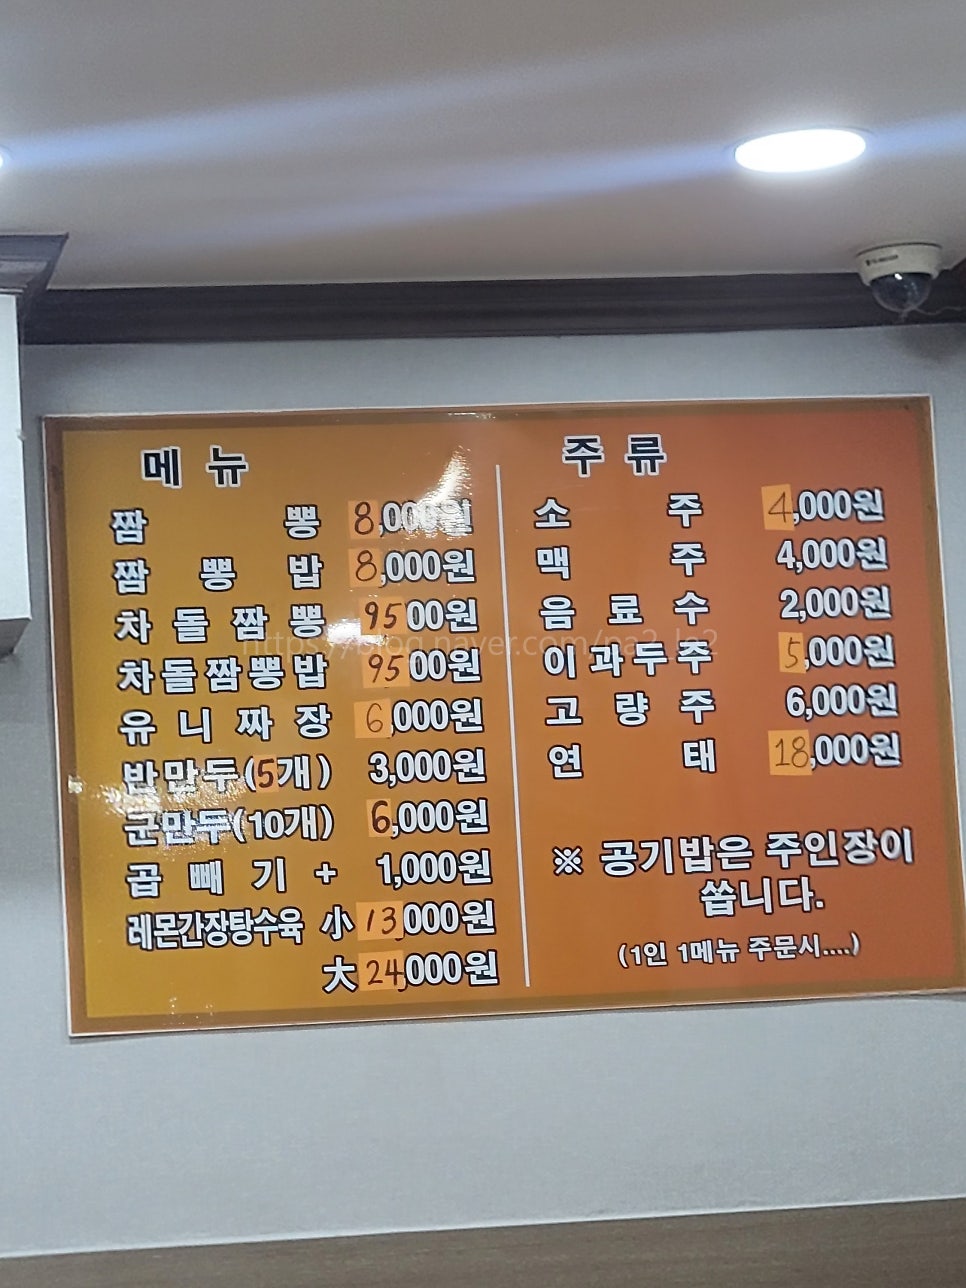 메뉴
짬뽕 8,000원
짬뽕밥 8,000원
차돌짬뽕 9500원
차돌짬뽕밥 9500원
유니짜장 6,000원
반만두(5개) 3,000원
군만두(10개) 6,000원
곱빼기 + 1,000원
레몬간장탕수육 小 13,000원
大 24,000원
주류
소주 4,000원
맥주 4,000원
음료수 2,000원
이과두주 5,000원
고량주 6,000원
연태 18,000원
※ 공기밥은 주인장이
쏩니다.
(1인 1메뉴 주문시....)
https://blog.naver.com/pa2_le2